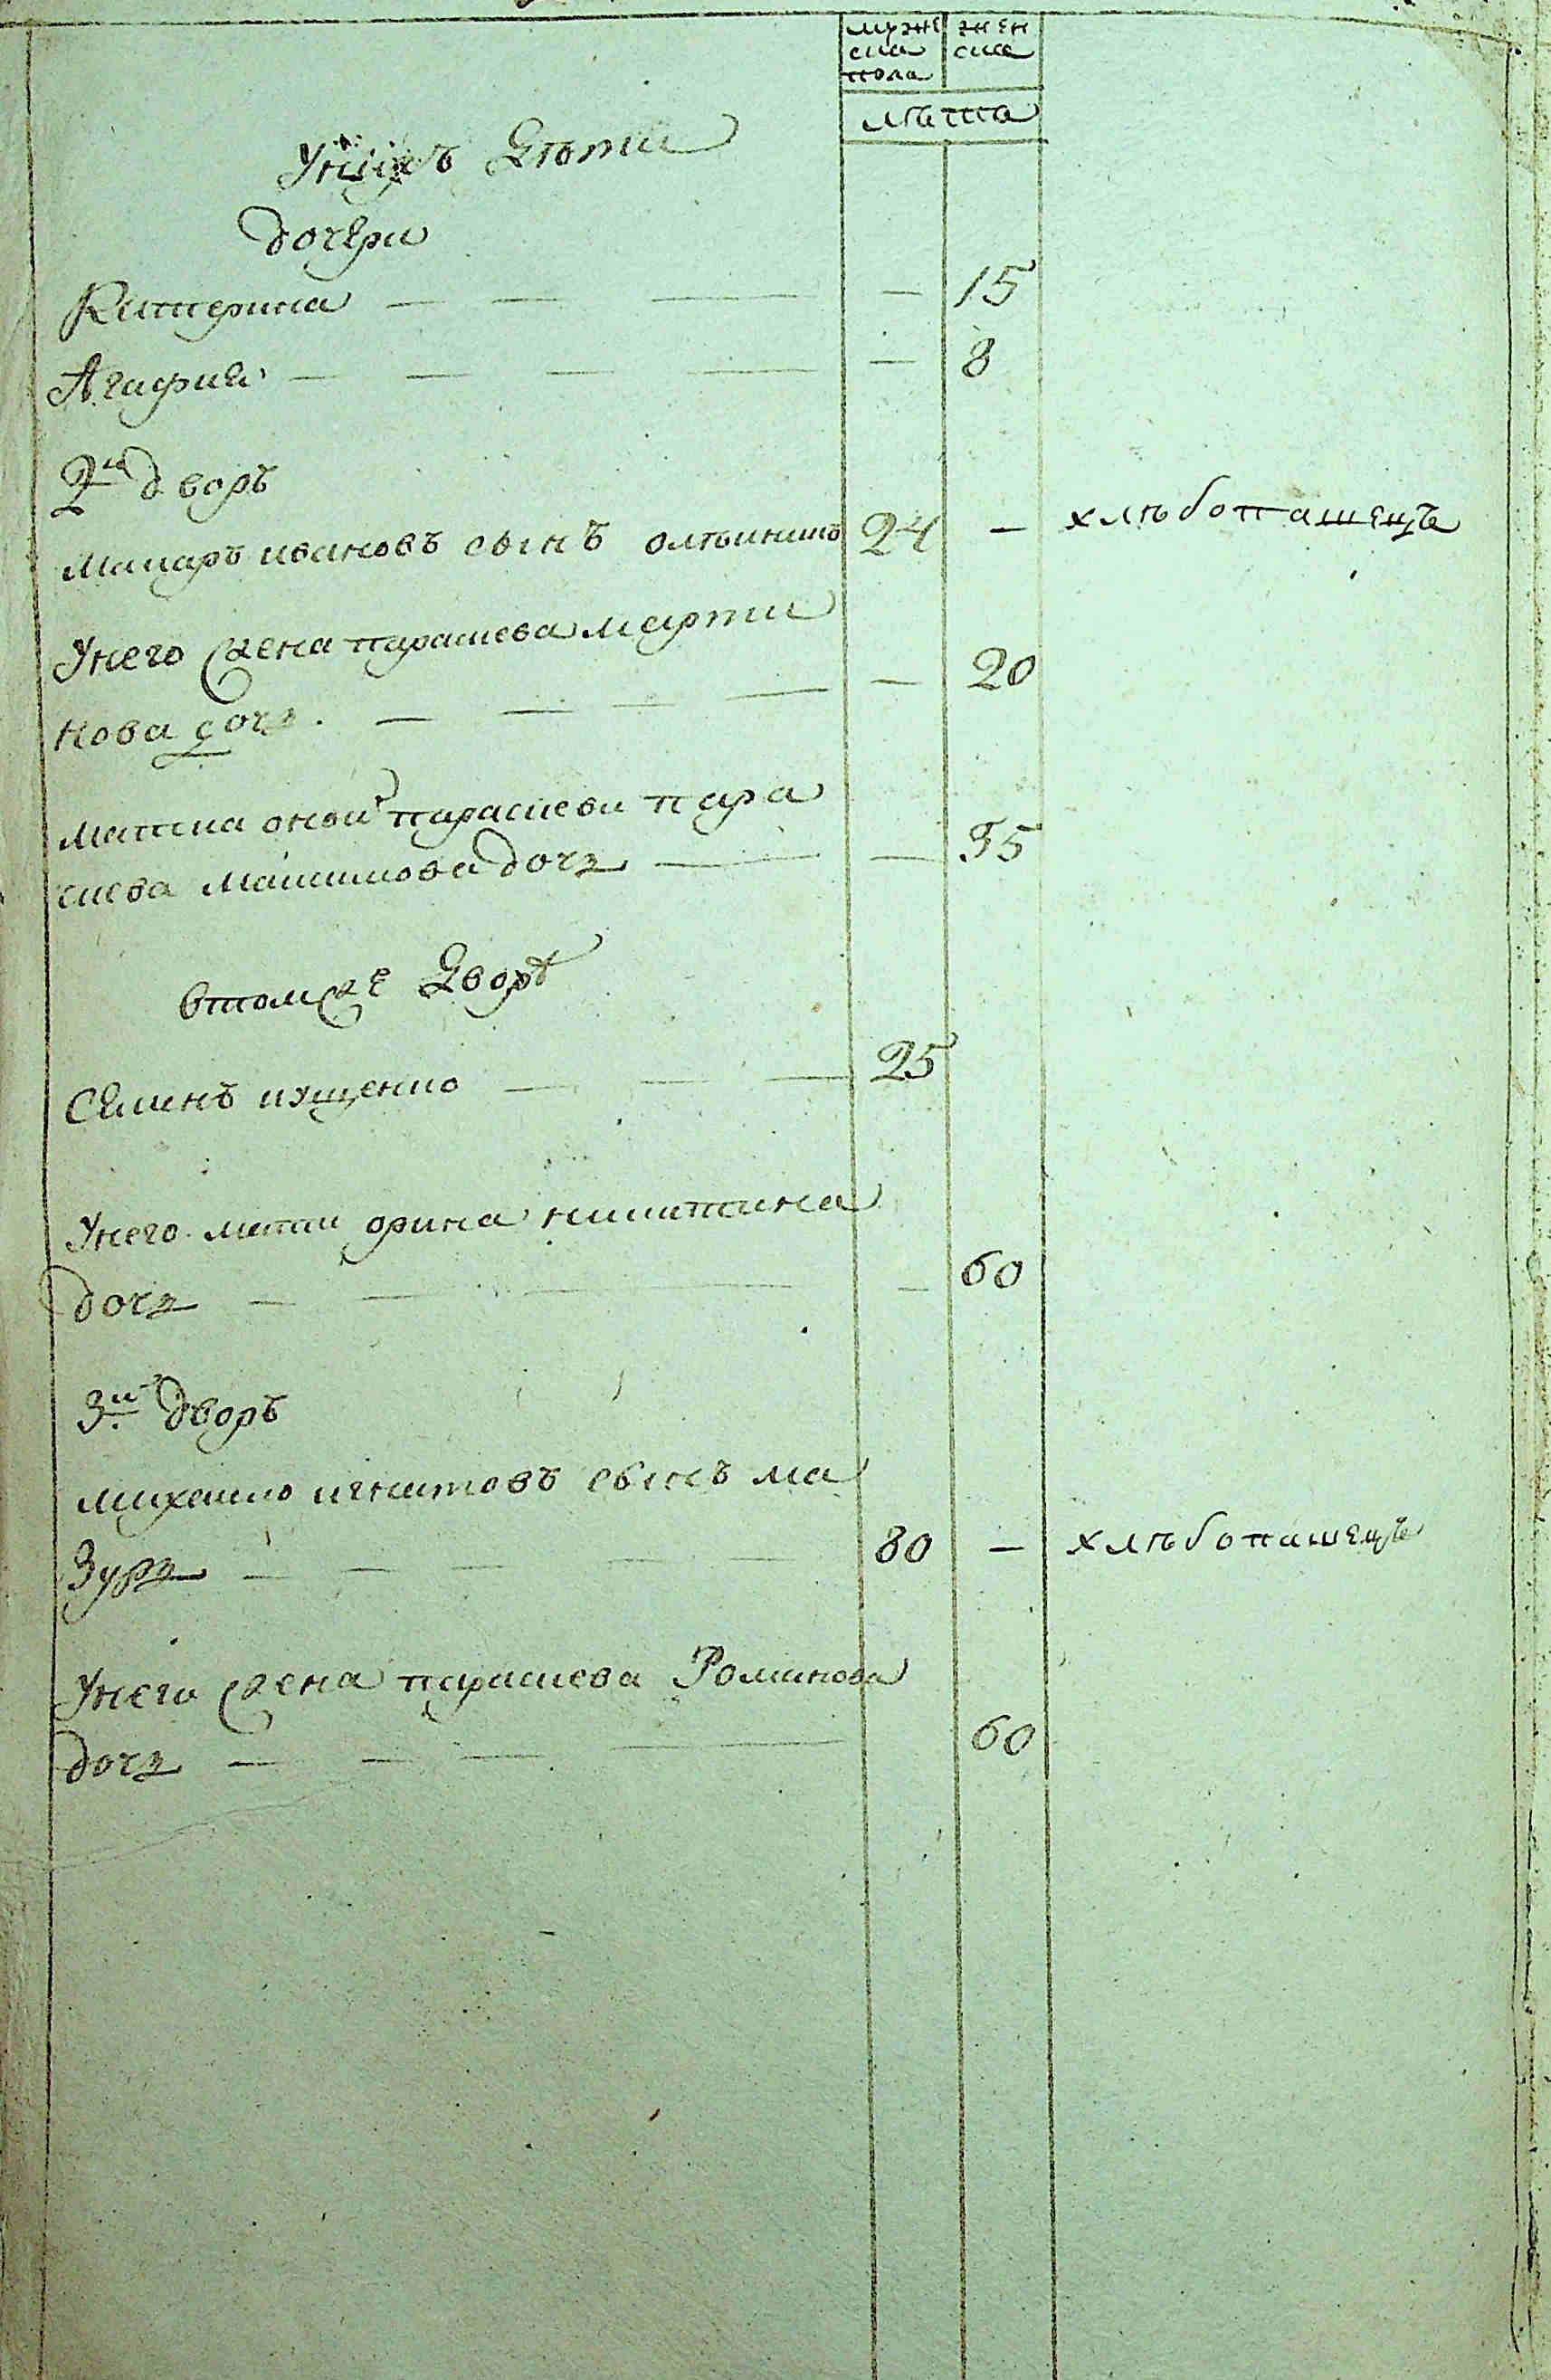 муже жен
ска ска
пола
лѣта
Унихъ дѣти
дочери
Катерина — — — — 15
Агафия — — — — — 8
2й дворъ
Макаръ ивановъ сынъ 24 — хлѣбопашецъ
Унего жена параскева марти
нова дочь — — — — — 20
Матка оной параскеви пара
скева дочь — — 35
втомже дворѣ
Семенъ ищенко — — — 25
Унего мати орина никитина
дочь — — — — — 60
3й дворъ
михаило игнатовъ сынъ ма
зурь — — — — — 80 — хлѣбопашецъ
Унего жена параскева Романова
дочь — — — — 60